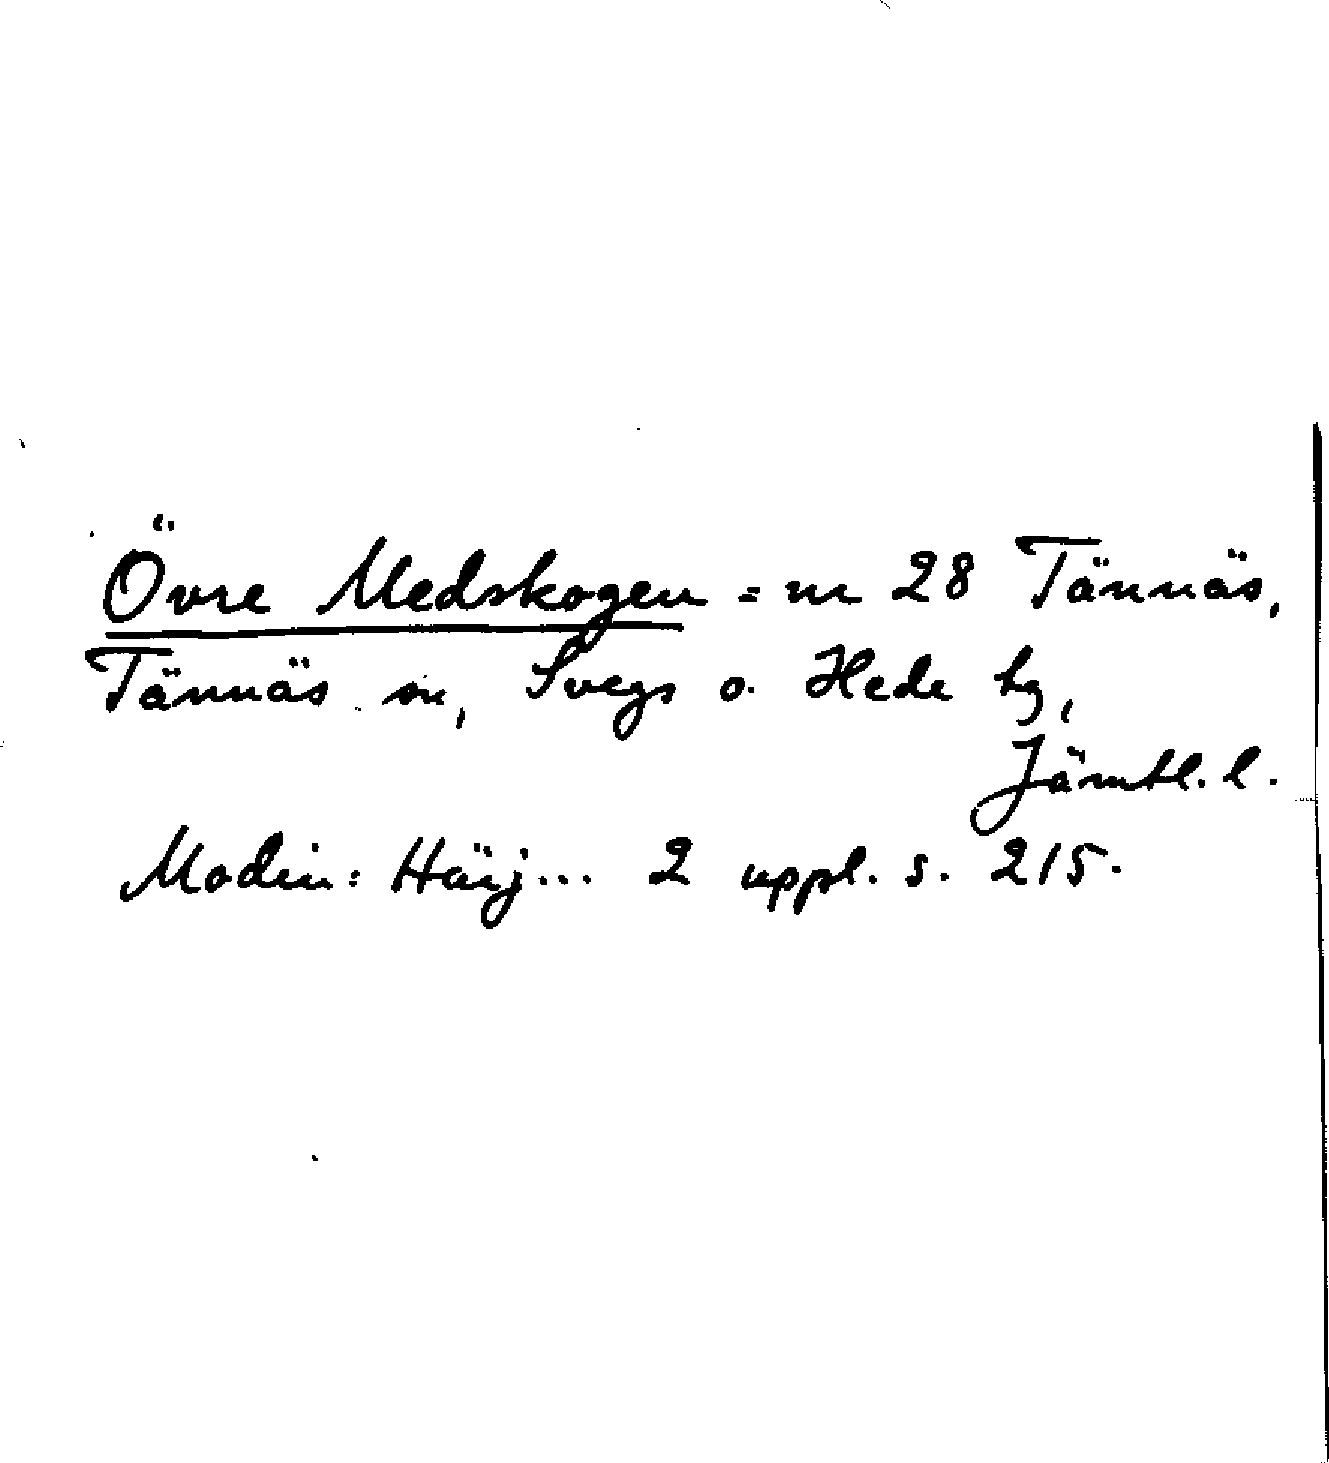 Övre Medskogen = nr 28 Tännäs,
Tännäs sn, Svegs o. Hede hg,
Jämtl. l.
Modin: Härj... 2 uppl. s. 215.